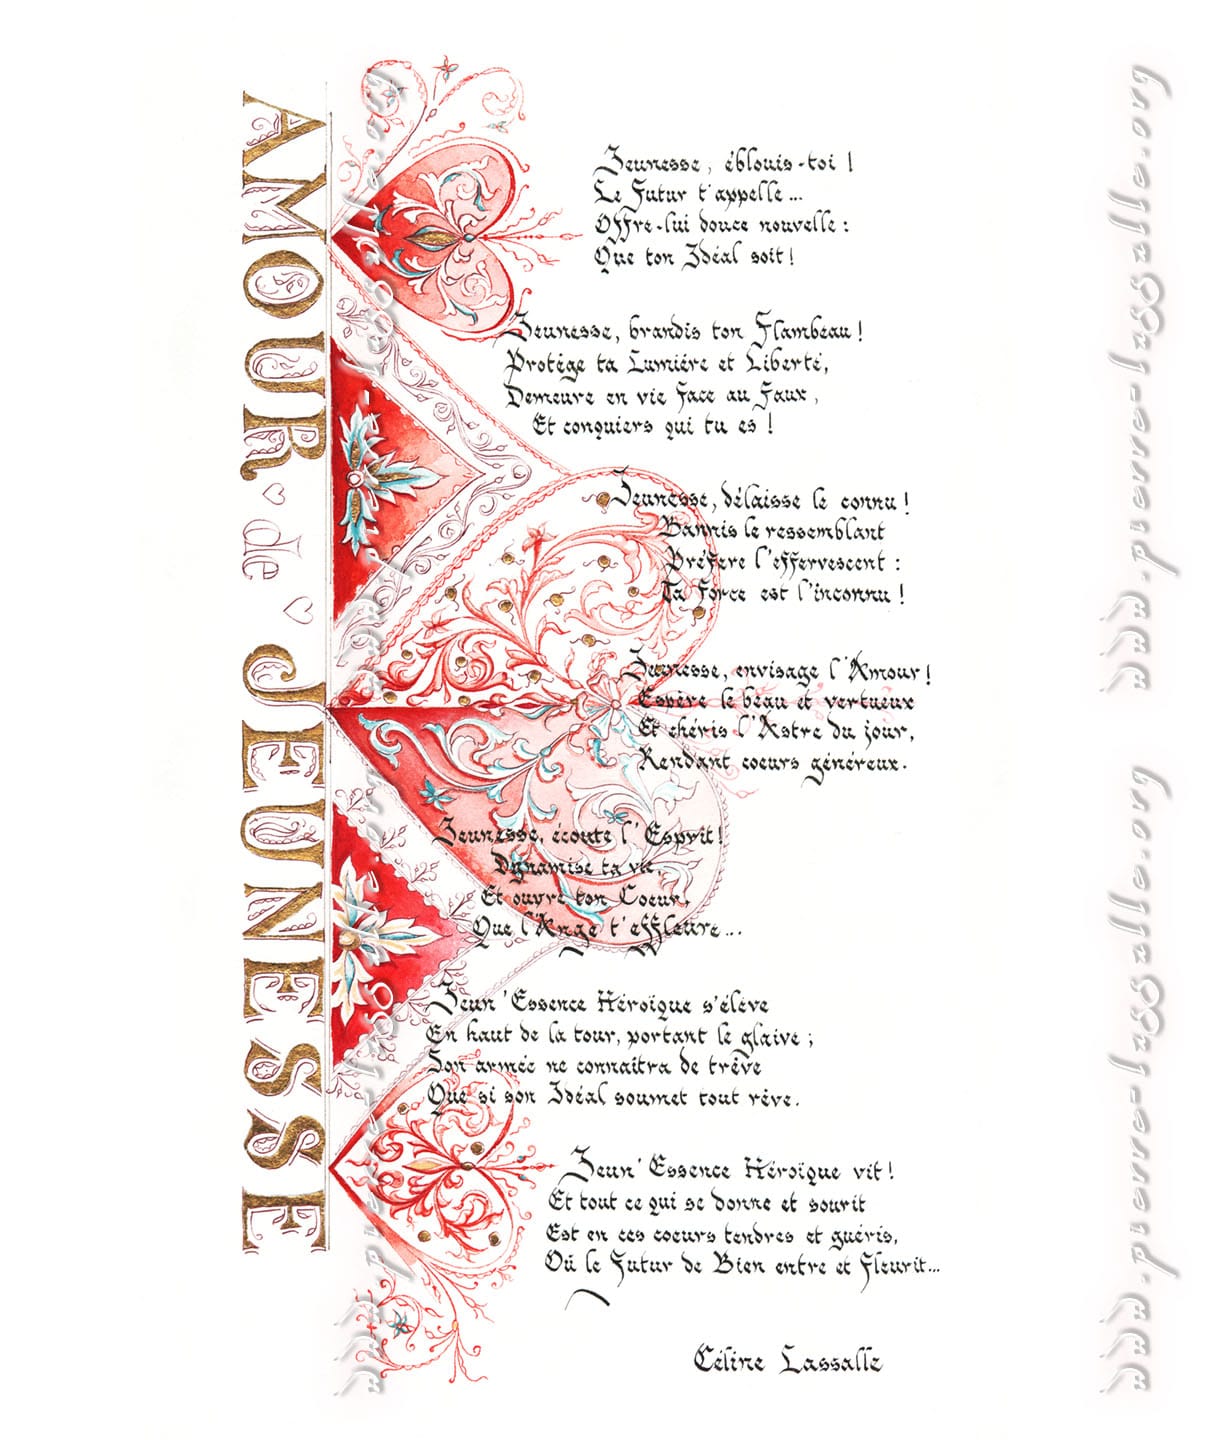 AMOUR de JEUNESSE
Jeunesse, éblouis-toi !
Le Futur t'appelle...
Offre-lui douce nouvelle :
Que ton Idéal soit !
Jeunesse, brandis ton Flambeau !
Protège ta Lumière et Liberté,
Demeure en vie face au Faux,
Et conquiers qui tu es !
Jeunesse, délaisse le connu !
Bannis le ressemblant
Préfère l'effervescent :
Ta force est l'inconnu !
Jeunesse, envisage l'Amour !
Espère le beau et vertueux
Et chéris l'Astre du jour,
Rendant coeurs généreux.
Jeunesse, écoute l'Esprit !
Dynamise ta vie,
Et ouvre ton Coeur,
Que l'Ange t'effleure...
Jeun'Essence Héroïque s'élève
En haut de la tour, portant le glaive ;
Son armée ne connaîtra de trêve
Que si son Idéal soumet tout rêve.
Jeun'Essence Héroïque vit !
Et tout ce qui se donne et sourit
Est en ces coeurs tendres et guéris,
Où le Futur de Bien entre et Fleurit...
Céline Lassalle
www.pierre-lassalle.org
www.pierre-lassalle.org
www.pierre-lassalle.org
www.pierre-lassalle.org